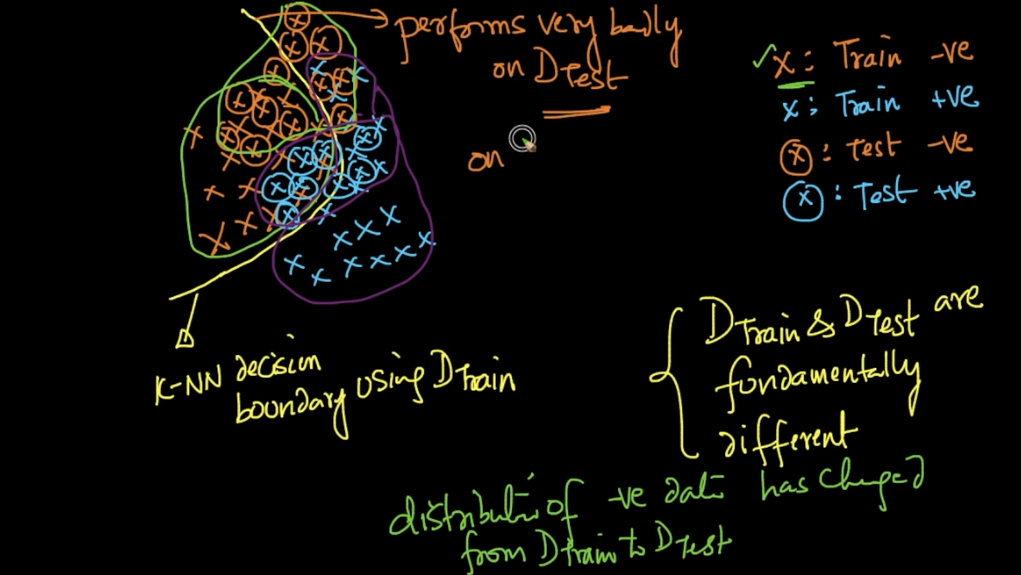 performs very badly
on DTest
on
✓x : Train -ve
x : Train +ve
ⓧ : Test -ve
ⓧ : Test +ve
K-NN decision
boundary using DTrain
DTrain & DTest are
fundamentally
different
distributi of -ve data has changed
from DTrain to DTest